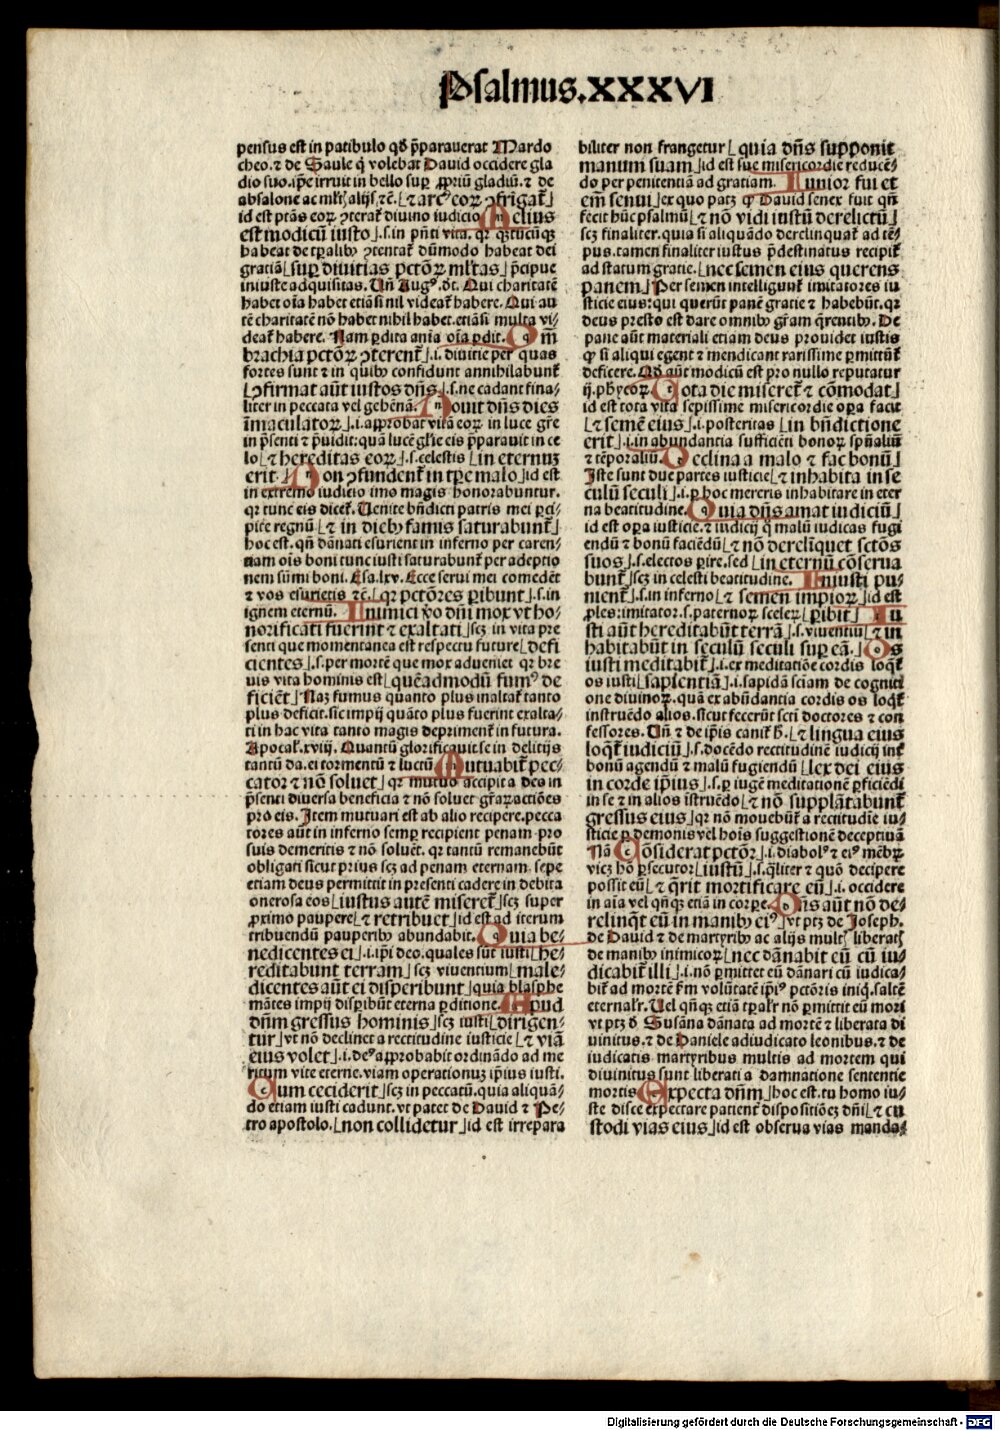 Psalmus.XXXVI
pensus est in patibulo qđ p̄parauerat Mardo
cheo.⁊ de Saule q̇ volebat Dauid occidere gla
dio suo.ip̄e irruit in bello suꝑ ꝓpriū gladiū.⁊ de
absalone ac ml̓tꝭ alijs ꝛc̄. [⁊ arcꝰ eoꝝ ꝯfrigat᷑]
id est ptās eoꝝ ꝯterat᷑ diuino iudicio. Melius
est modicū iusto].s.in pn̄ti vita. qꝛ qz̄tūcūqꝫ
habeat de tꝑalibꝰ ꝯtentat᷑ dūmodo habeat dei
gratiā [suꝑ diuitias pctōꝝ ml̓tas] p̄cipue
iniuste adquisitas. Vn̄ Augꝰ. dt̄. Qui charitatē
habet oīa habet etiāsi nil videat᷑ habere. Qui au
tē charitatē nō habet nihil habet.etiāsi multa vi⸗
deat᷑ habere. Nam ꝑdita anīa oīa ꝑdit. Qm̄
brachia pctōꝝ ꝯterent᷑].i. diuitie per quas
fortes sunt ⁊ in quibꝰ confidunt annihilabunt᷑
[ꝯfirmat aūt iustos dn̄s].s.ne cadant fina⸗
liter in peccata vel gehēnā. Nouit dn̄s dies
īmaculatoꝝ].i.approbat vitā eoꝝ in luce gr̄e
in p̄senti ⁊ p̄uidit:quā lucē gl̓ie eis p̄parauit in ce
lo [⁊ hereditas eoꝝ].s.celestis [in eternuꝫ
erit.] Non ꝯfundent᷑ in tꝑe malo] id est
in extremo iudicio imo magis honorabuntur.
qꝛ tunc eis dicet᷑. Uenite bn̄dicti patris mei ꝑci⸗
pite regnū [⁊ in diebꝰ famis saturabunt᷑]
hoc est. qn̄ dānati esurient in inferno per caren⸗
tiam oīs boni tunc iusti saturabunt᷑ per adeptio
nem sūmi boni. Esa.lxv. Ecce serui mei comedēt
⁊ vos esurietis ⁊c̄. [qꝛ pctōres ꝑibunt].s.in
ignem eternū. Inimici v̓o dn̄i mox vt ho⸗
norificati fuerint ⁊ exaltati] scꝫ in vita pre
senti que momentanea est respectu future [defi
cientes].s.per mortē que mox adueniet qꝛ bre
uis vita hominis est [quēadmodū fumꝰ de
ficiēt] Naꝫ fumus quanto plus inaltat᷑ tanto
plus deficit.sic impij quāto plus fuerint exalta⸗
ti in hac vita tanto magis depriment᷑ in futura.
Apocal̓.xviij. Quantū glorificauit se in delitijs
tantū da.ei tormentū ⁊ luctū. Mutuabit᷑ pec⸗
cator ⁊ nō soluet] qꝛ mutuo accipit a deo in
p̄senti diuersa beneficia ⁊ nō soluet gr̄aꝝactiōes
pro eis. Item mutuari est ab alio recipere.pecca
tores aūt in inferno semꝑ recipient penam pro
suis demeritis ⁊ nō soluēt. qꝛ tantū remanebūt
obligati sicut prius scꝫ ad penam eternam. sepe
etiam deus permittit in presenti cadere in debita
onerosa eos [iustus autē miseret᷑] scꝫ super
ꝓximo paupere [⁊ retribuet] id est ad iterum
tribuendū pauperibꝰ abundabit. Quia be⸗
nedicentes ei].i.ip̄i deo.quales sūt iusti [he⸗
reditabunt terram] scꝫ viuentium [male⸗
dicentes aūt ei disperibunt] quia blasphe
mātes impij disꝑibūt eterna ꝑditione. Apud
dn̄m gressus hominis] scꝫ iusti [dirigen⸗
tur] vt nō declinet a rectitudine iusticie [⁊ viā
eius volet].i.deꝰ approbabit ordināndo ad me
ritum vite eterne.viam operationuꝫ ip̄ius iusti.
Cum ceciderit] scꝫ in peccatū.quia aliquā⸗
do etiam iusti cadunt. vt patet de Dauid ⁊ Pe⸗
tro apostolo. [non collidetur] id est irrepara
biliter non frangetur [quia dn̄s supponit
manum suam] id est sue misericordie reducē⸗
do per penitentiā ad gratiam. Iunior fui et
em̄ senui] ex quo patꝫ ꝙ Dauid senex fuit qn̄
fecit hūc psalmū [⁊ nō vidi iustū derelictū]
scꝫ finaliter.quia si aliquādo derelinquat᷑ ad tē⸗
pus.tamen finaliter iustus p̄destinatus recipit᷑
ad statum gratie. [nec semen eius querens
panem] Per semen intelligunt᷑ imitatores iu
sticie eius:qui querūt panē gratie ⁊ habebūt.qꝛ
deus presto est dare omnibꝰ gr̄am q̄rentibꝰ. De
pane aūt materiali etiam deus prouidet iustis
ꝙ si aliqui egent ⁊ mendicant rarissime ꝑmittūt᷑
deficere. Qđ aūt modicū est pro nullo reputatur
ij.phycoꝝ. Tota die miseret᷑ ⁊ cōmodat]
id est tota vita sepissime misericordie oꝑa facit
[⁊ semē eius].i.posteritas [in bn̄dictione
erit].i.in abundantia sufficiēti bonoꝝ spn̄aliū
⁊ tēporaliū. Declina a malo ⁊ fac bonū]
Iste sunt due partes iusticie [⁊ inhabita in se
culū seculi].i.ꝑ hoc mereris inhabitare in eter
na beatitudine. Quia dn̄s amat iudiciū]
id est oꝑa iusticie.⁊ iudicij q̄ malū iudicas fugi
endū ⁊ bonū faciēdū [⁊ nō derelīquet sctōs
suos].s.electos ꝑire.sed [in eternū cōserua
bunt᷑] scꝫ in celesti beatitudine. Iniusti pu⸗
nient᷑].s.in inferno [⁊ semen impioꝝ] id est
ꝓles:imitatoꝝ.s.paternoꝝ sceleꝝ [ꝑibit] Iu
sti aūt hereditabūt terrā].s.viuentiū [⁊ in
habitabūt in seculū seculi suꝑ eā.] Os
iusti meditabit᷑].i.ex meditatiōe cordis loqt᷑
os iusti [sapientiā].i.sapidā sciam de cogniti
one diuinoꝝ.quā ex abūdantia cordis os loqt᷑
instruēdo alios.sicut fecerūt scti doctores ⁊ con
fessores. Vn̄ ⁊ de ip̄is canit᷑ h̄. [⁊ lingua eius
loqt᷑ iudiciū].s.docēdo rectitudinē iudicij int̓
bonū agendū ⁊ malū fugiendū [lex dei eius
in corde ip̄ius].s.ꝑ iugē meditationē ꝑficiēdi
in se ⁊ in alios īstruēdo [⁊ nō supplātabunt᷑
gressus eius] qꝛ nō mouebūt᷑ a rectitudīe iu⸗
sticie ꝑ demonis vel hoīs suggestionē deceptiuā
Nā Cōsiderat pctōr].i.diabolꝰ ⁊ eiꝰ mēbꝝ
vicꝫ hō ꝑsecutor [iustū].s.q̄liter ⁊ quō decipere
possit eū [⁊ q̄rit mortificare eū].i.occidere
in aīa vel qn̄qꝫ etiā in corꝑe. Dn̄s aūt nō de⸗
relinqt᷑ eū in manibꝰ eiꝰ] vt ptꝫ de Joseph.
de Dauid ⁊ de martyribꝰ ac alijs multꝭ liberatꝭ
de manibꝰ inimicoꝝ [nec dānabit eū cū iu⸗
dicabit᷑ illi].i.nō ꝑmittet eū dānari cū iudica⸗
bit᷑ ad mortē ẜm volūtatē ip̄iꝰ pctōris iniq̇.saltē
eternalr̓. Uel qn̄qꝫ etiā tꝑalr̓ nō ꝑmittit eū mori
vt ptꝫ đ Susāna dānata ad mortē ⁊ liberata di
uinitus.⁊ de Daniele adiudicato leonibus.⁊ de
iudicatis martyribus multis ad mortem qui
diuinitus sunt liberati a damnatione sententie
mortis. Expecta dn̄m] hoc est.tu homo iu⸗
ste disce expectare patient᷑ dispositiōeꝫ dn̄i [⁊ cu
stodi vias eius] id est obserua vias manda⸗
Digitalisierung gefördert durch die Deutsche Forschungsgemeinschaft - DFG